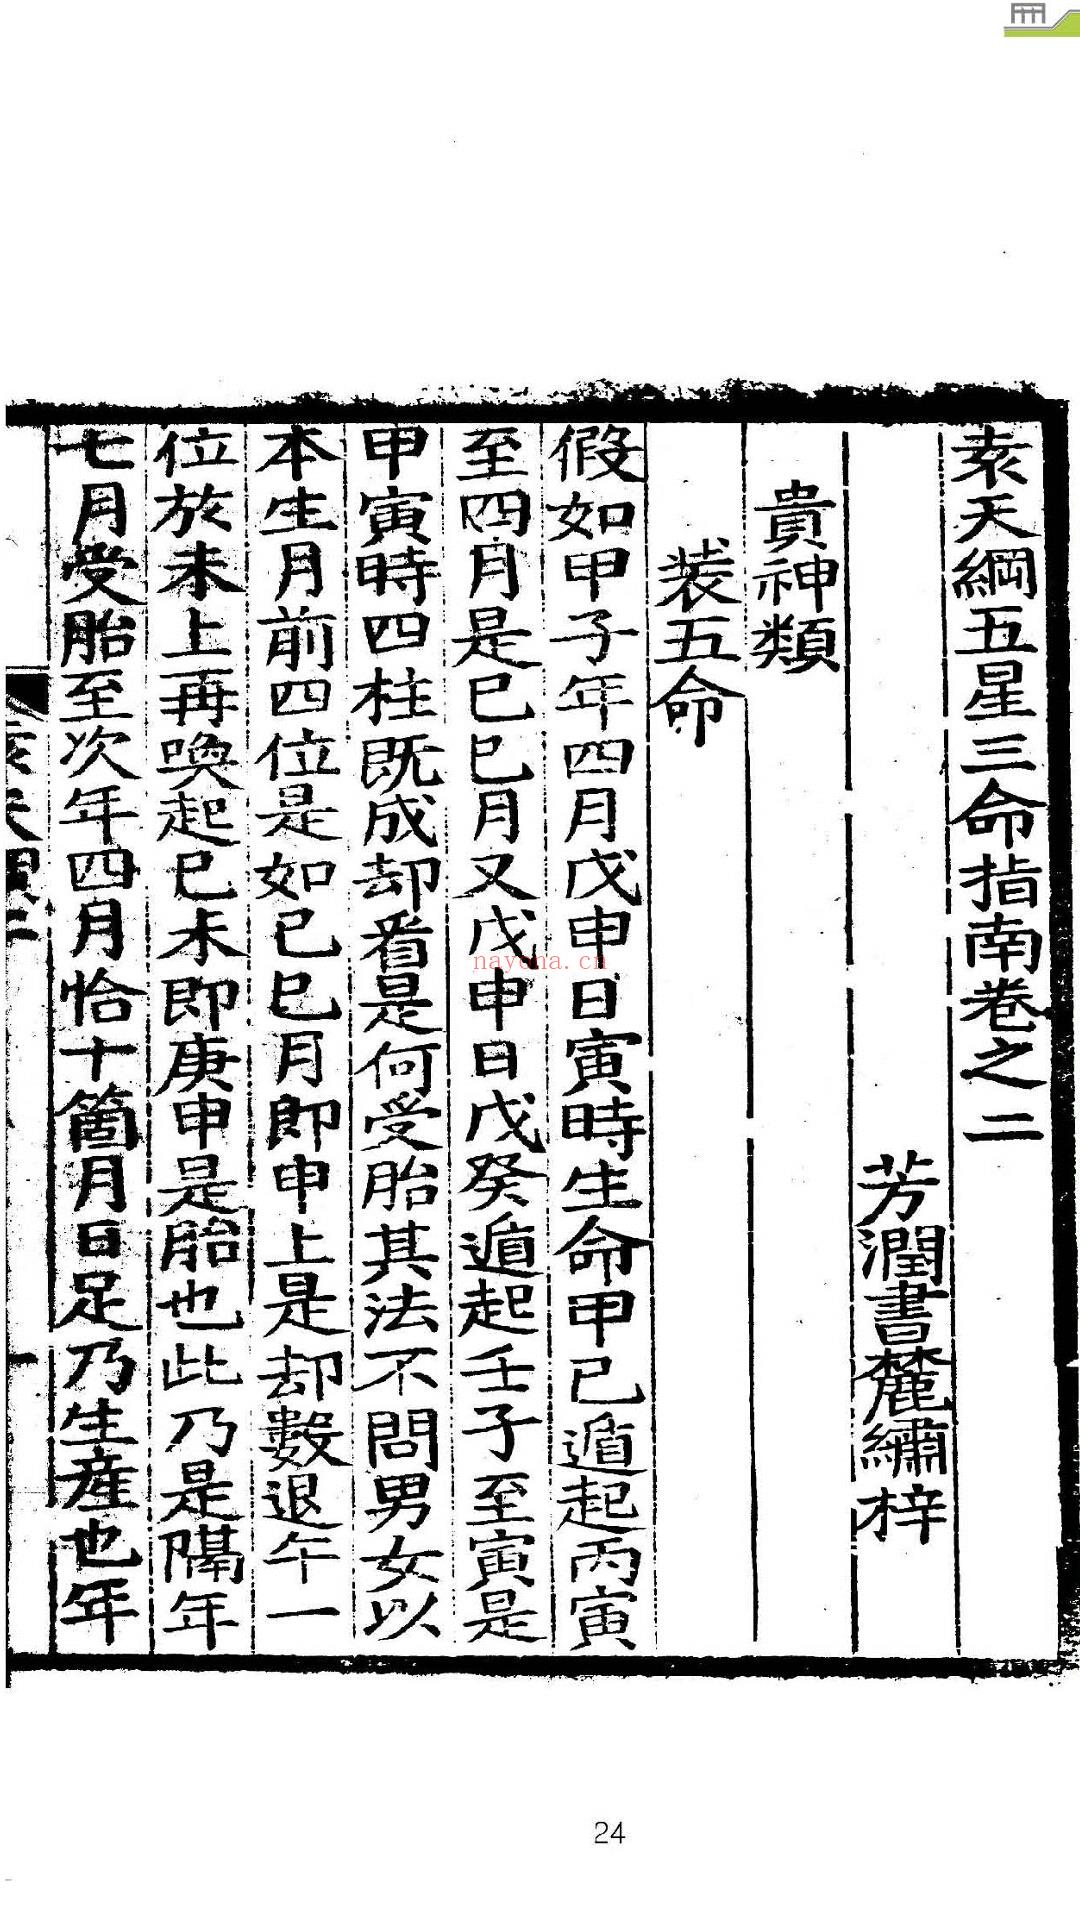 袁天綱五星三命指南卷之二
芳澗書麓繡梓
貴神類
装五命
假如甲子年四月戊申日寅時生命甲己遁起丙寅
至四月是己巳月又戊申日戊癸遁起壬子至寅是
甲寅時四柱既成却看是何受胎其法不問男女以
本生月前四位是如己巳月即申上是却數退午一
位於未上再喚起己未即庚申是胎也此乃是隔年
七月受胎至次年四月恰十箇月日足乃生産也年
nayona.cn
24